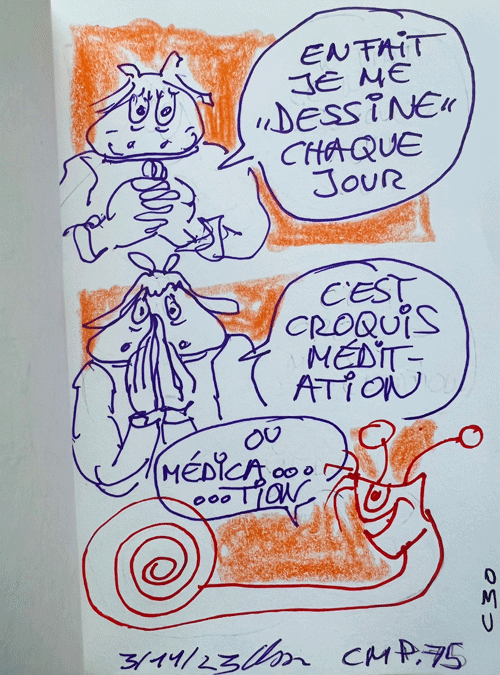 EN FAIT
JE ME
"DESSINE"
CHAQUE
JOUR
C'EST
CROQUIS
MÉDIT-
ATION
OU
MÉDICA....
...TION
C30
3/14/23
CMP.75